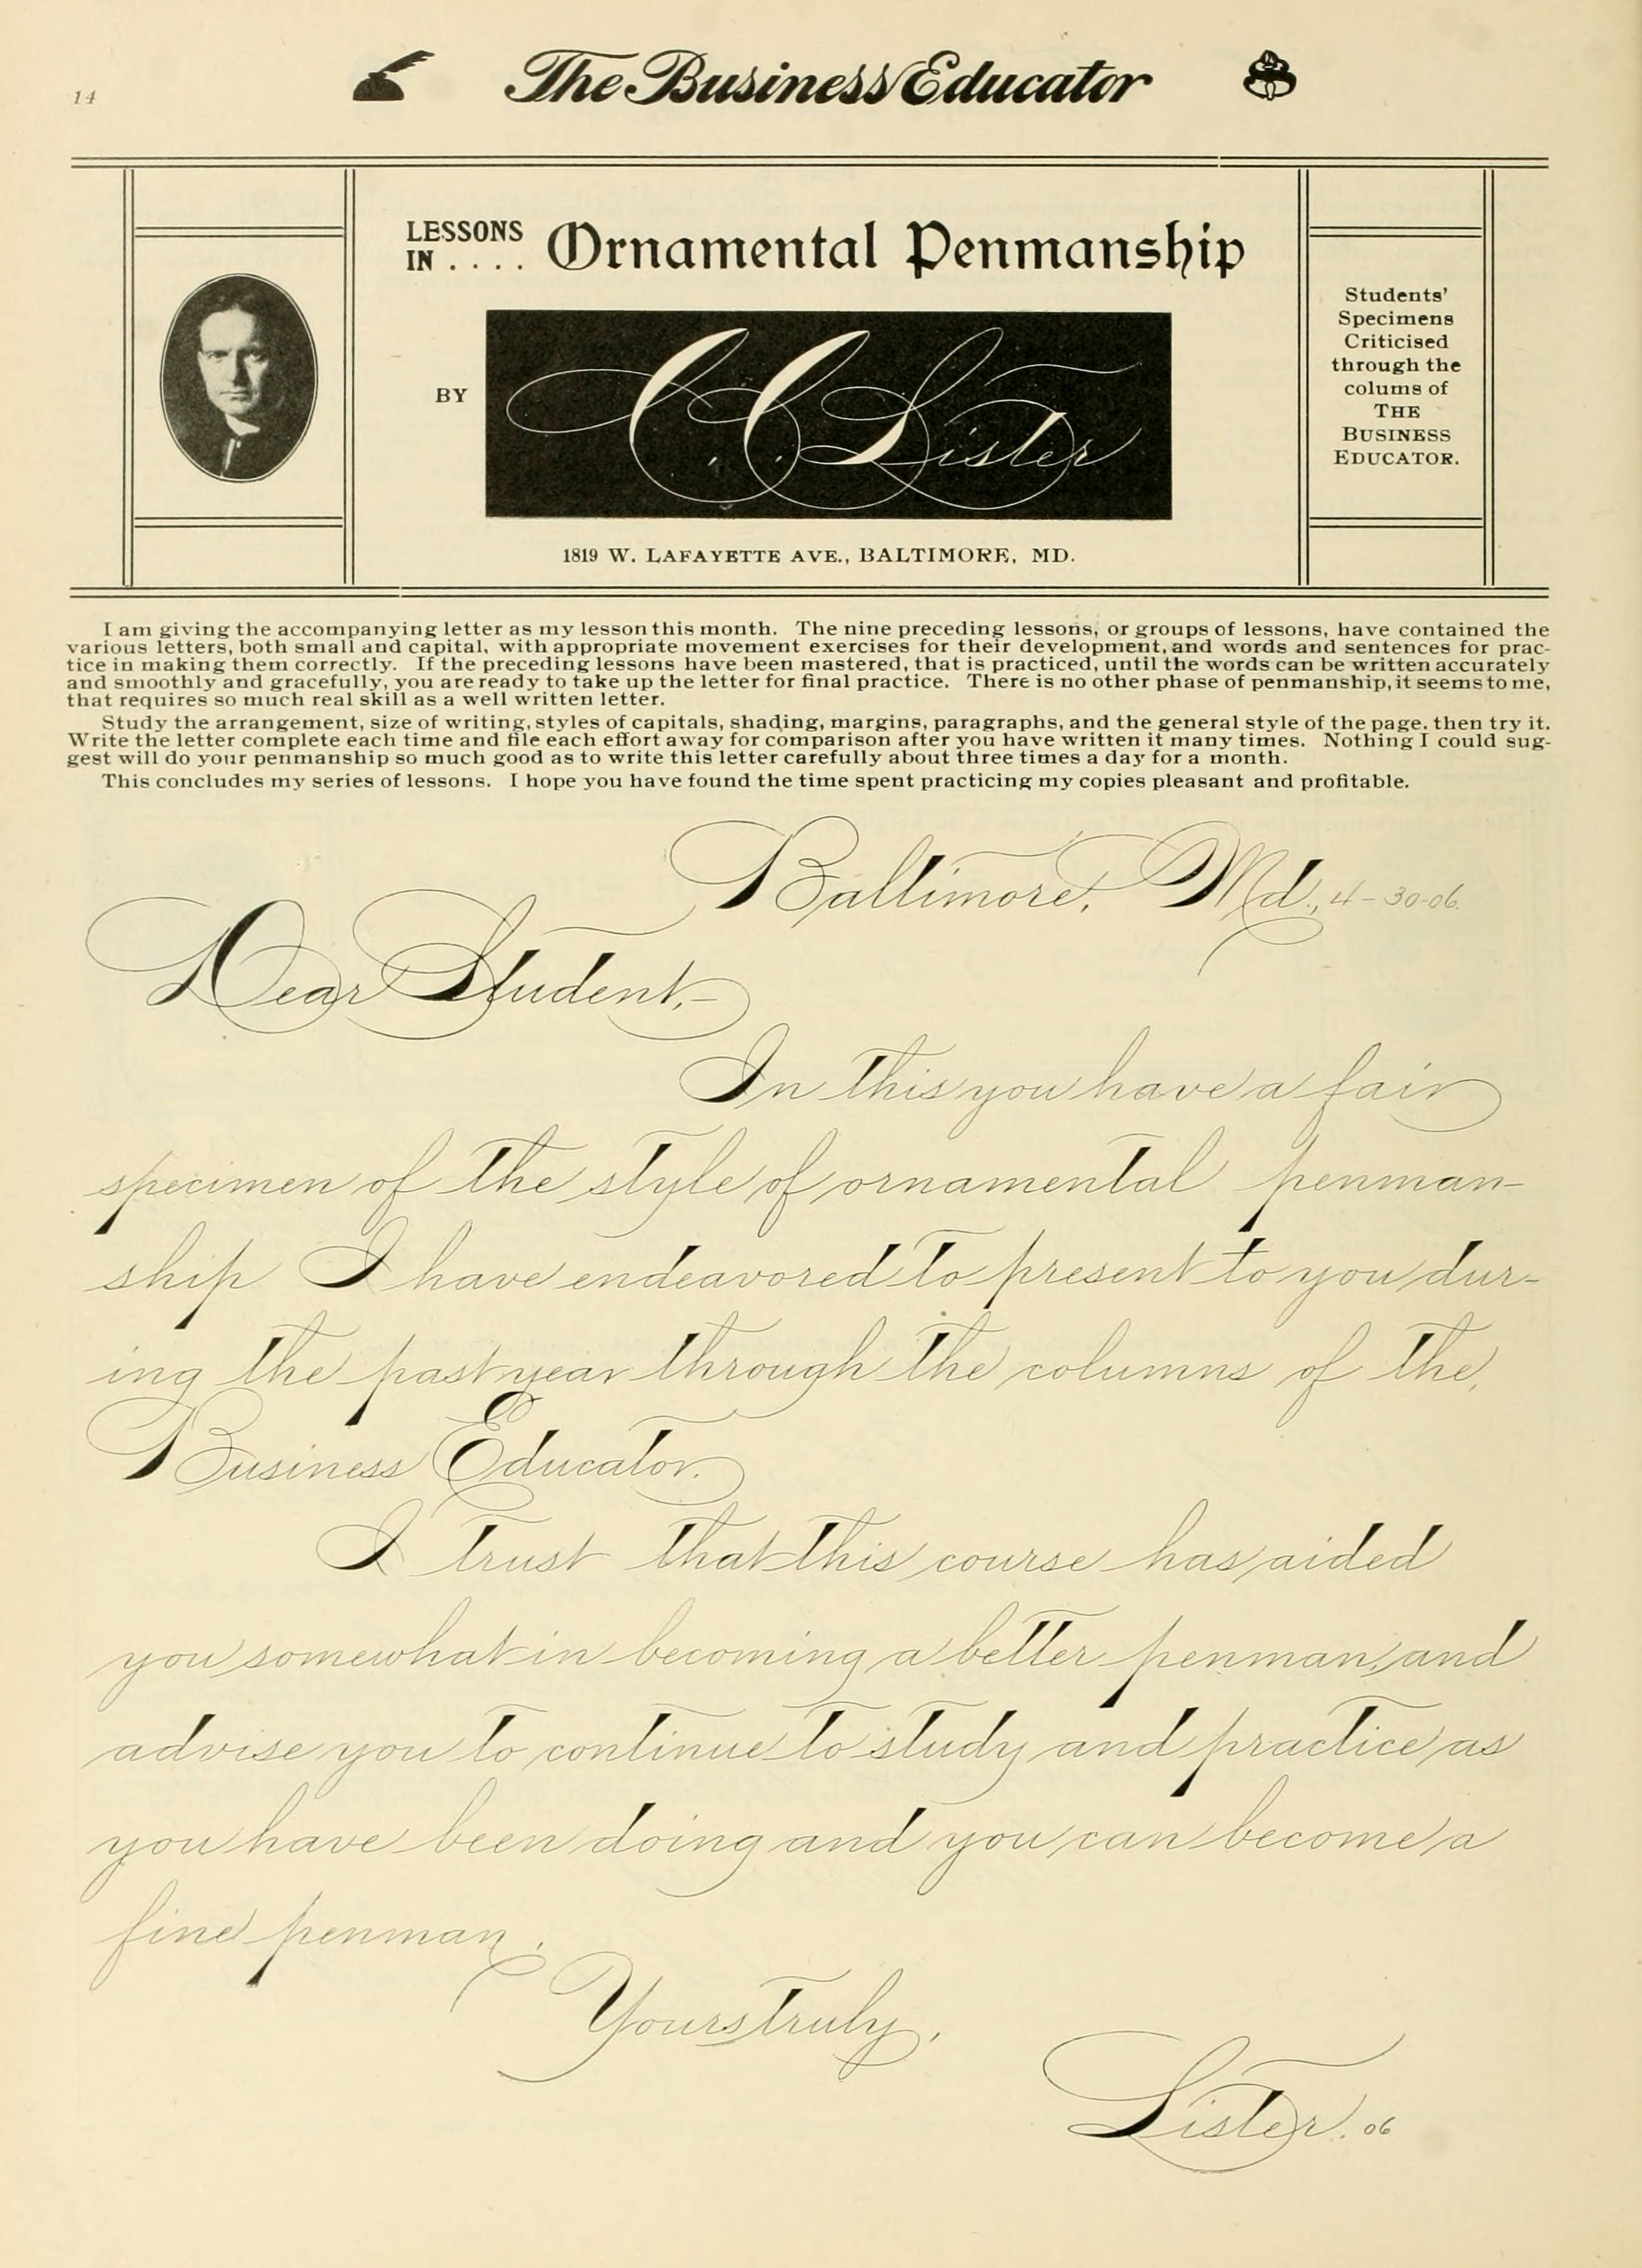 14
The Business Educator
LESSONS
IN . . . .
Ornamental Penmanship
BY
C C Lister
1819 W. LAFAYETTE AVE., BALTIMORE, MD.
Students'
Specimens
Criticised
through the
colums of
THE
BUSINESS
EDUCATOR.
I am giving the accompanying letter as my lesson this month. The nine preceding lessons, or groups of lessons, have contained the
various letters, both small and capital, with appropriate movement exercises for their development, and words and sentences for prac-
tice in making them correctly. If the preceding lessons have been mastered, that is practiced, until the words can be written accurately
and smoothly and gracefully, you are ready to take up the letter for final practice. There is no other phase of penmanship, it seems to me,
that requires so much real skill as a well written letter.
Study the arrangement, size of writing, styles of capitals, shading, margins, paragraphs, and the general style of the page. then try it.
Write the letter complete each time and file each effort away for comparison after you have written it many times. Nothing I could sug-
gest will do your penmanship so much good as to write this letter carefully about three times a day for a month.
This concludes my series of lessons. I hope you have found the time spent practicing my copies pleasant and profitable.
Baltimore, Md., 4-30-06.
Dear Student,-
In this you have a fair
specimen of the style of ornamental penman-
ship I have endeavored to present to you dur-
ing the past year through the columns of the
Business Educator.
I trust that this course has aided
you somewhat in becoming a better penman, and
advise you to continue to study and practice as
you have been doing and you can become a
fine penman.
Yours truly,
Lister. 06